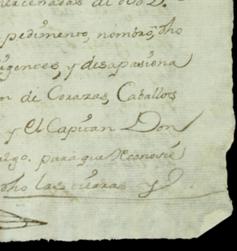 pedimento, nombró, dho
igences, y desapasiona
n de Corazas, Caballos
y el Capitan Don
algo. para que Reconosie
dho las tierras y